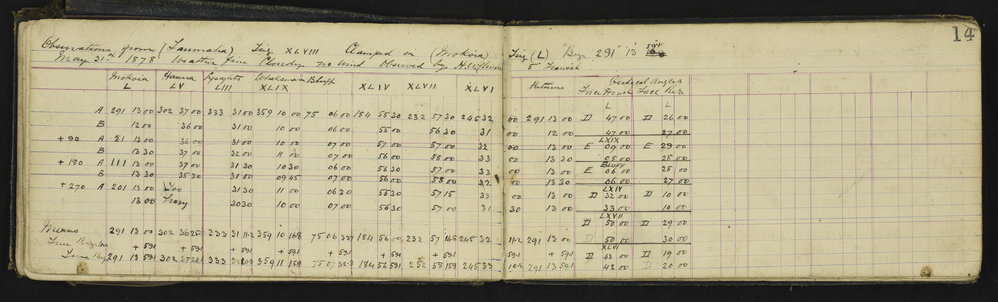 14
Observations from (Taumaha) Trig XLVIII Clamped on (Mokoia) Trig (L) Brg 291° 13
May 31st 1878 Weather fine Cloudy no wind Observed by
5" Transit
Mokoia Hawera Bluff XLIV XLVII XLVI Returns Vertical Angles
L LV LIII XLIX Face Face
L L
A 291 13 00 302 37 00 333 31 00 359 10 00 75 06 00 184 55 30 232 57 30 245 32 00 291 13 00 D 47 00 D 26 00
B 12 00 36 00 31 00 10 00 06 00 55 00 56 30 31 00 12 00 47 00 27 00
LXIX
+ 90 A 21 13 00 36 00 31 00 10 00 07 00 57 00 57 00 32 00 13 00 E 09 00 E 29 00
B 13 30 37 00 32 00 11 00 07 00 56 00 58 00 33 00 13 30 08 00 28 00
BLUFF
+ 180 A 111 13 00 37 00 31 30 10 30 06 00 56 30 57 00 33 00 13 00 E 06 00 25 00
B 13 30 35 30 31 00 09 45 07 00 56 00 58 00 32 00 13 30 06 00 27 00
LXIV
+ 270 A 201 13 00 Too 31 30 11 00 06 30 55 30 57 15 33 00 13 00 D 32 00 D 10 00
13 00 Hazy 30 30 10 00 07 00 56 30 57 00 31 30 13 00 33 00 10 00
LXVII
D 50 00 D 29 00
Means 291 13 00 302 36 333 31 359 10 75 06 184 56 232 57 245 32 291 13 00 50 00 30 00
XLVI
+ 591 + 591 + 591 + 591 + 591 + 591 + 591 591 + 591 D 43 00 D 19 00
True Brg 291 13 591 302 37 333 359 11 75 07 184 56 232 58 245 33 291 13 591 42 00 D 20 00